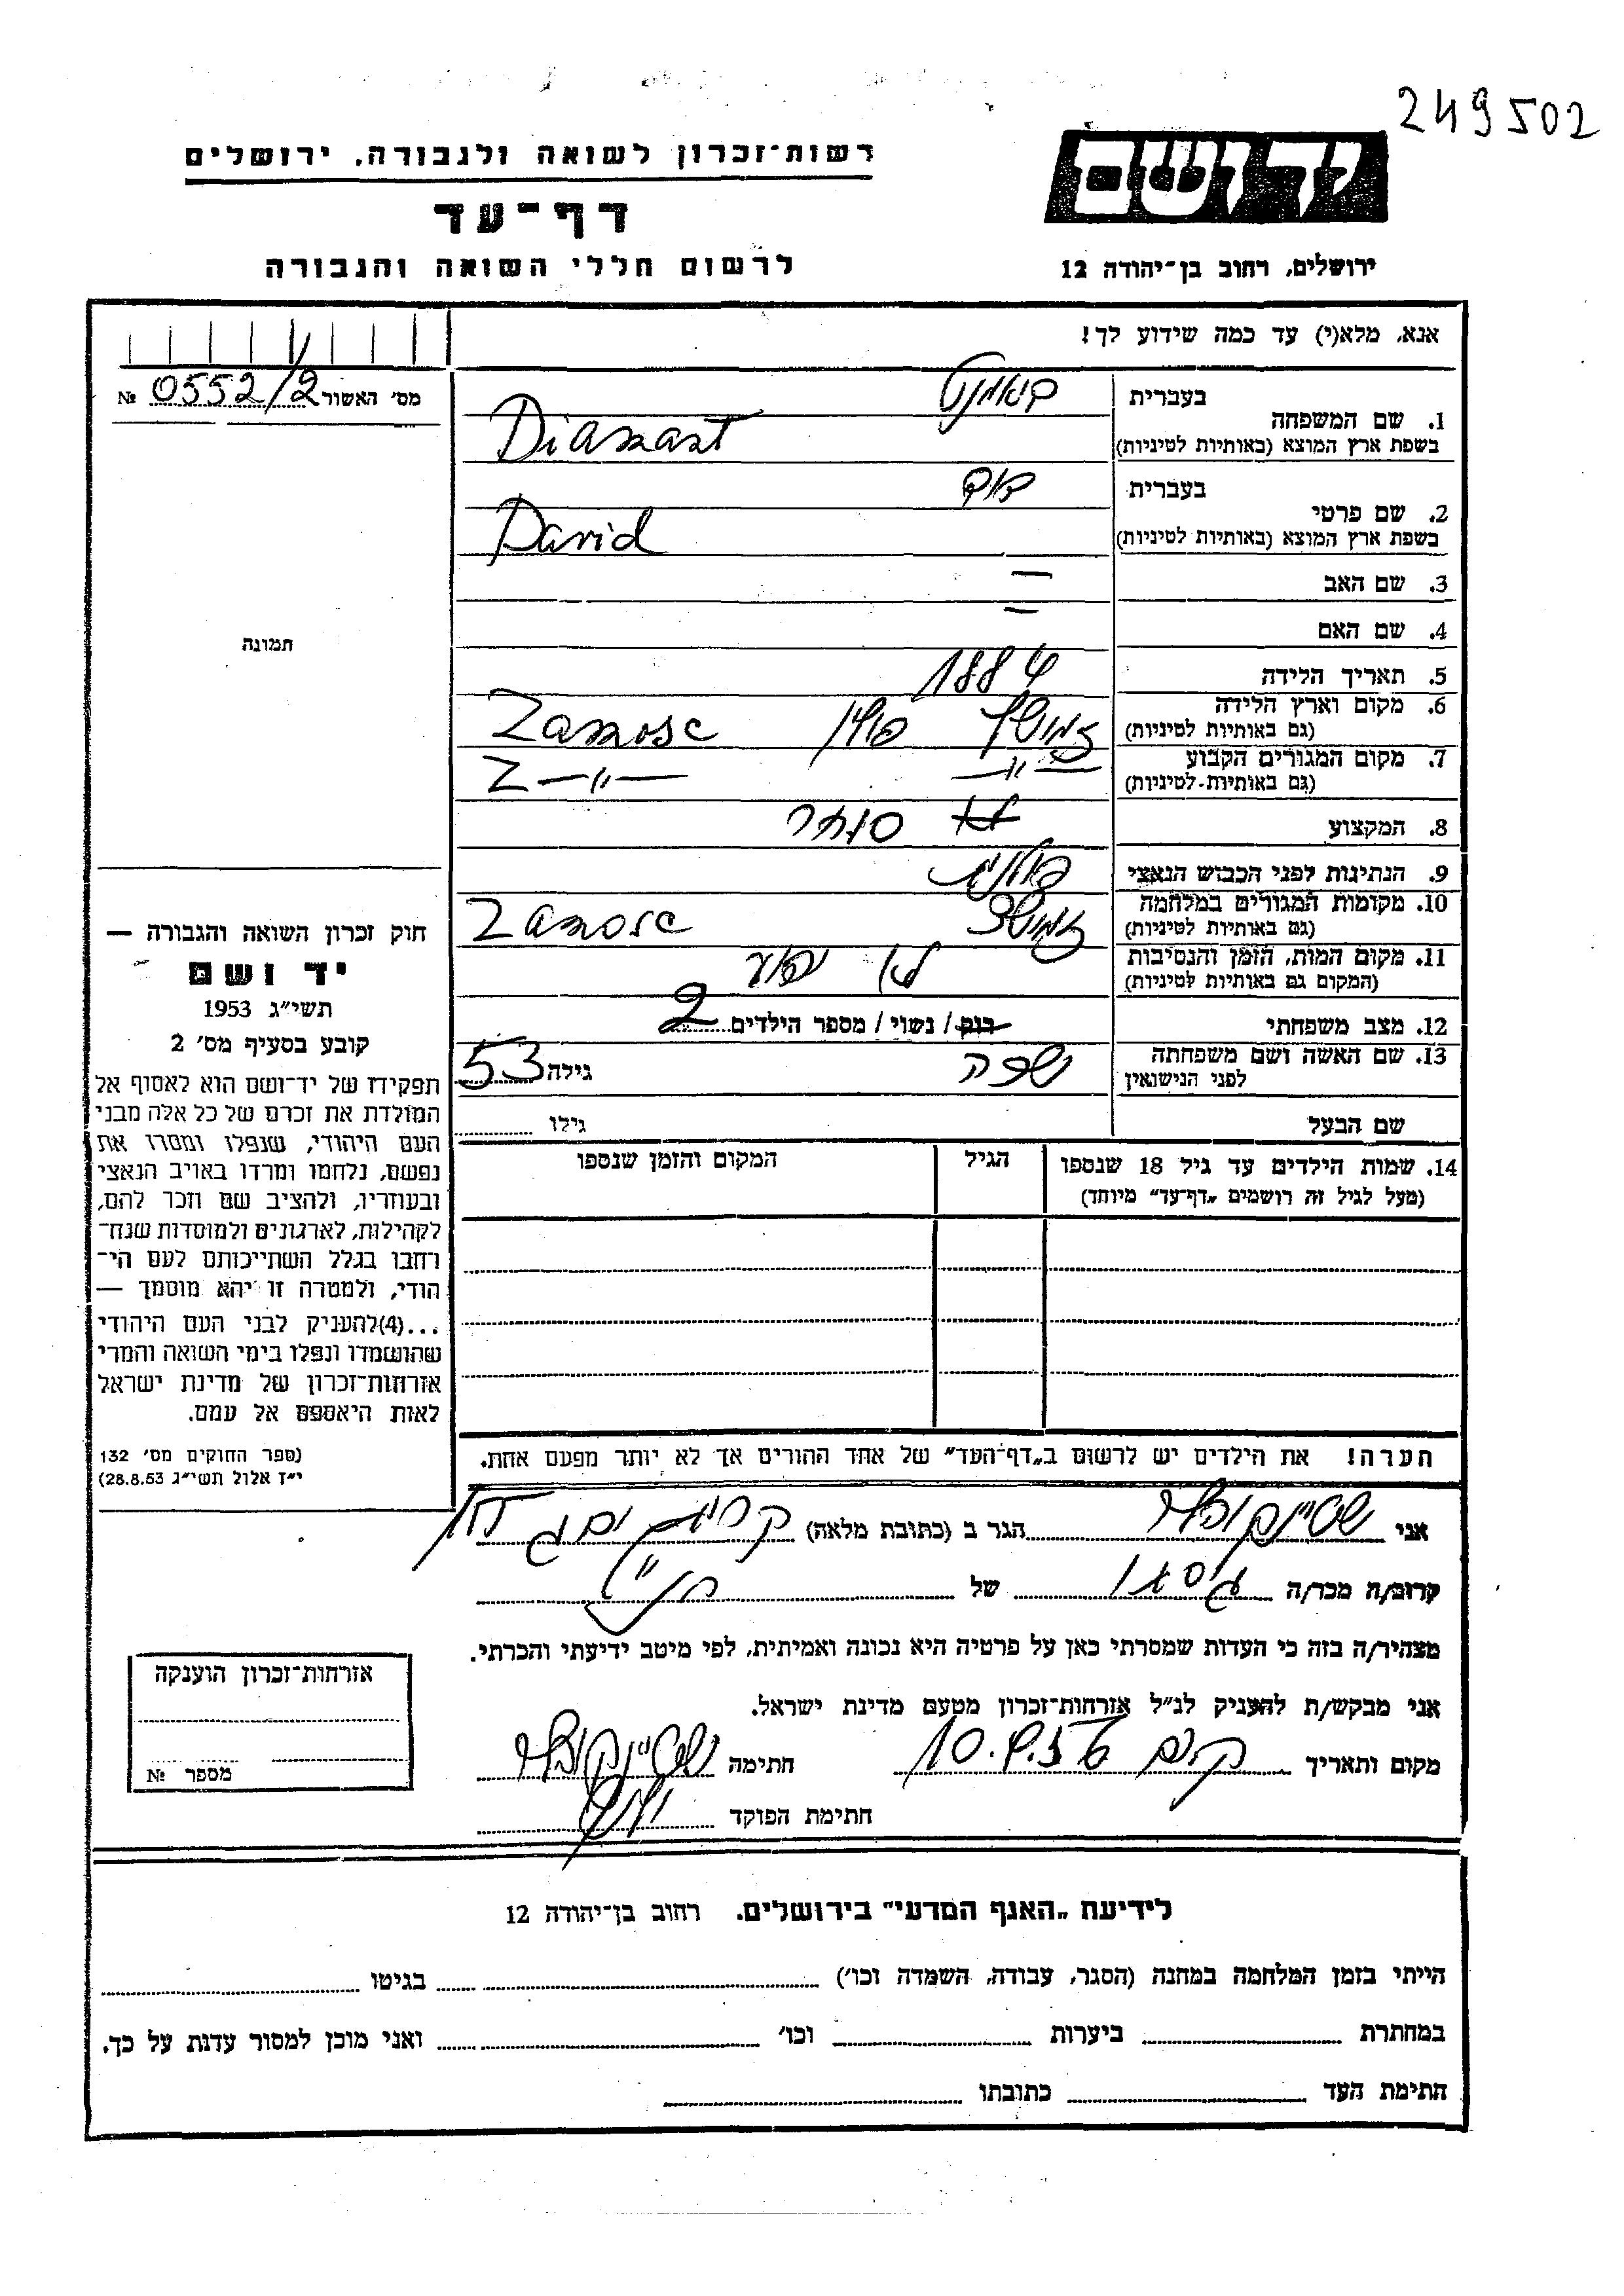 249502
רשות-זכרון לשואה ולגבורה, ירושלים
יד ושם
דף-עד
לרשום חללי השואה והגבורה
ירושלים, רחוב בן-יהודה 12
אנא, מלא(י) עד כמה שידוע לך!
מס׳ האשור 0552/2 №
תמונה
חוק זכרון השואה והגבורה —
יד ושם
תשי״ג 1953
קובע בסעיף מס׳ 2
תפקידו של יד-ושם הוא לאסוף אל
המולדת את זכרם של כל אלה מבני
העם היהודי, שנפלו ומסרו את
נפשם, נלחמו ומרדו באויב הנאצי
ובעוזריו, ולהציב שם וזכר להם,
לקהילות, לארגונים ולמוסדות שנח-
רחבו בגלל השתייכותם לעם הי-
הודי, ולמטרה זו יהא מוסמך —
...(4)להעניק לבני העם היהודי
שהושמדו ונפלו בימי השואה והמרי
אזרחות-זכרון של מדינת ישראל
לאות היאספם אל עמם.
(ספר החוקים מס׳ 132
י״ז אלול תשי״ג 28.8.53)
בעברית דיאמנט
1. שם המשפחה
בשפת ארץ המוצא (באותיות לטיניות) Diamant
בעברית דוד
2. שם פרטי
בשפת ארץ המוצא (באותיות לטיניות) David
3. שם האב —
4. שם האם —
5. תאריך הלידה 1884
6. מקום וארץ הלידה זמושץ פולין Zamosc
(גם באותיות לטיניות)
7. מקום המגורים הקבוע —״— Z —״—
(גם באותיות-לטיניות)
8. המקצוע סוחר
9. הנתינות לפני הכבוש הנאצי פולנית
10. מקומות המגורים במלחמה זמושץ Zamosc
(גם באותיות לטיניות)
11. מקום המות, הזמן והנסיבות לא ידוע
(המקום גם באותיות לטיניות)
12. מצב משפחתי רווק / נשוי / מספר הילדים 2
13. שם האשה ושם משפחתה גילה 53
לפני הנישואין
שם הבעל גילו
14. שמות הילדים עד גיל 18 שנספו הגיל המקום והזמן שנספו
(מעל לגיל זה רושמים „דף-עד״ מיוחד)
הערה! את הילדים יש לרשום ב„דף-העד״ של אחד ההורים אך לא יותר מפעם אחת.
אני הגר ב (כתובת מלאה)
קרוב/ה מכר/ה של
מצהיר/ה בזה כי העדות שמסרתי כאן על פרטיה היא נכונה ואמיתית, לפי מיטב ידיעתי והכרתי.
אני מבקש/ת להעניק לנ״ל אזרחות-זכרון מטעם מדינת ישראל.
מקום ותאריך חתימה
חתימת הפוקד
אזרחות-זכרון הוענקה
מספר №
לידיעת „האגף המדעי״ בירושלים, רחוב בן-יהודה 12
הייתי בזמן המלחמה במחנה (הסגר, עבודה, השמדה וכו׳) בגיטו
במחתרת ביערות וכו׳ ואני מוכן למסור עדות על כך.
חתימת העד כתובתו